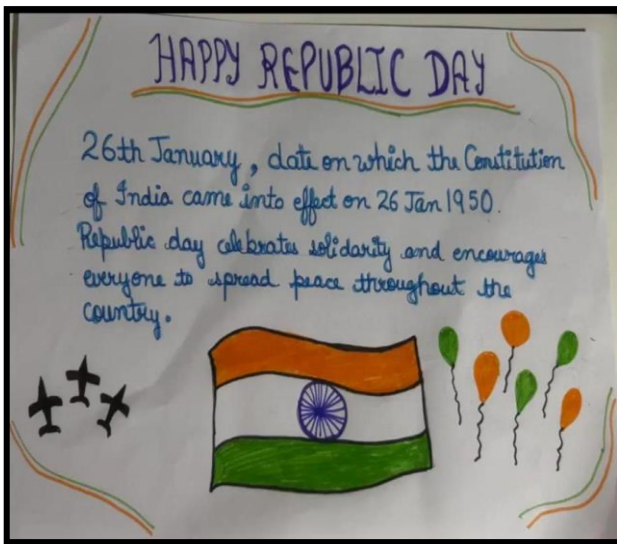 HAPPY REPUBLIC DAY
26th January, date on which the Constitution
of India came into effect on 26 Jan 1950.
Republic day celebrates solidarity and encourages
everyone to spread peace throughout the
country.